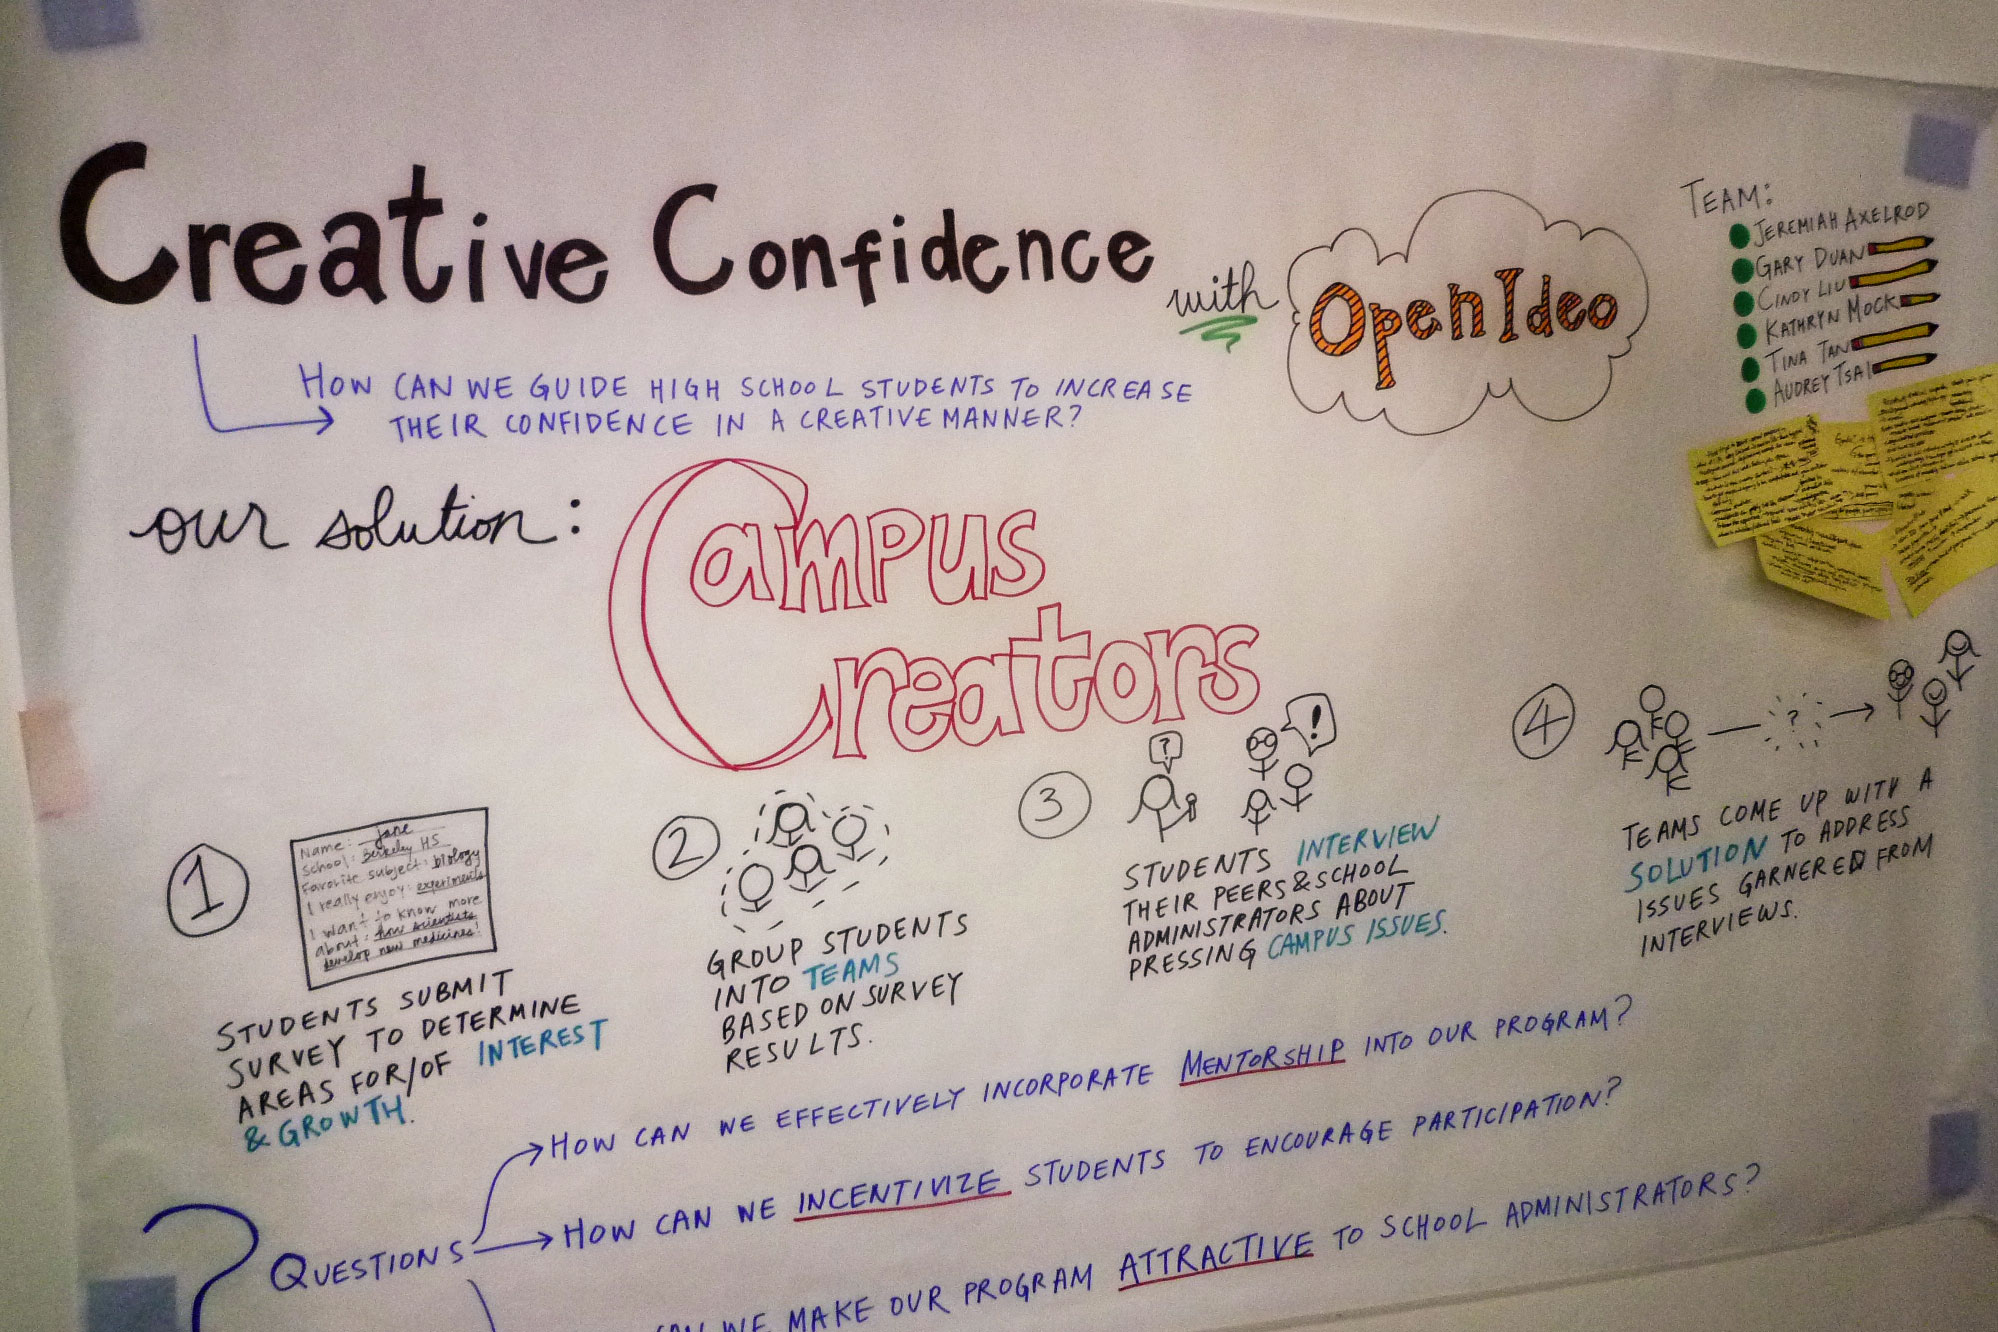 Creative Confidence with OpenIdeo
HOW CAN WE GUIDE HIGH SCHOOL STUDENTS TO INCREASE
THEIR CONFIDENCE IN A CREATIVE MANNER?
TEAM:
JEREMIAH AXELROD
GARY DUAN
CINDY LIU
KATHRYN MOCK
TINA TAN
AUDREY TSAI
our solution:
Campus
Creators
1
Name: Jane
School: Berkeley HS
Favorite subject: biology
I really enjoy: experiments
I want to know more
about: how scientists
develop new medicines!
STUDENTS SUBMIT
SURVEY TO DETERMINE
AREAS FOR/OF INTEREST
& GROWTH.
2
GROUP STUDENTS
INTO TEAMS
BASED ON SURVEY
RESULTS.
3
?
!
STUDENTS INTERVIEW
THEIR PEERS & SCHOOL
ADMINISTRATORS ABOUT
PRESSING CAMPUS ISSUES.
4
?
TEAMS COME UP WITH A
SOLUTION TO ADDRESS
ISSUES GARNERED FROM
INTERVIEWS.
? QUESTIONS
HOW CAN WE EFFECTIVELY INCORPORATE MENTORSHIP INTO OUR PROGRAM?
HOW CAN WE INCENTIVIZE STUDENTS TO ENCOURAGE PARTICIPATION?
CAN WE MAKE OUR PROGRAM ATTRACTIVE TO SCHOOL ADMINISTRATORS?